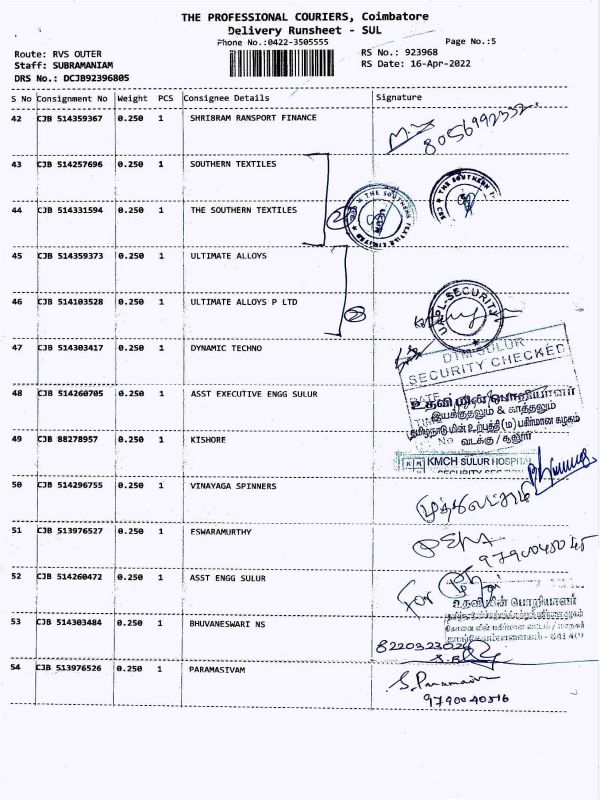 THE PROFESSIONAL COURIERS, Coimbatore
Delivery Runsheet - SUL
Phone No.:0422-3505555
Page No.:5
Route: RVS OUTER
RS No.: 923968
Staff: SUBRAMANIAM
RS Date: 16-Apr-2022
DRS No.: DCJB92396805
S No Consignment No Weight PCS Consignee Details Signature
42 CJB 514359367 0.250 1 SHRIBRAM RANSPORT FINANCE
8056992332
43 CJB 514257696 0.250 1 SOUTHERN TEXTILES
44 CJB 514331594 0.250 1 THE SOUTHERN TEXTILES
2
THE SOUTHERN TEXTILE LIMITED
THE SOUTHERN
45 CJB 514359373 0.250 1 ULTIMATE ALLOYS
46 CJB 514103528 0.250 1 ULTIMATE ALLOYS P LTD
2
UAPL-SECURITY
47 CJB 514303417 0.250 1 DYNAMIC TECHNO
DTM SULUR
SECURITY CHECKED
DATE
TIME
No
48 CJB 514260705 0.250 1 ASST EXECUTIVE ENGG SULUR
உதவி மின் பொறியாளர்
இயக்குதலும் & காத்தலும்
தமிழ்நாடு மின் உற்பத்தி (ம) பகிர்மான கழகம்
வடக்கு / சூலூர்
49 CJB 88278957 0.250 1 KISHORE
KMCH SULUR HOSPITAL
SECURITY SECTION
50 CJB 514296755 0.250 1 VINAYAGA SPINNERS
51 CJB 513976527 0.250 1 ESWARAMURTHY
52 CJB 514260472 0.250 1 ASST ENGG SULUR
For
உதவி மின் பொறியாளர்
53 CJB 514303484 0.250 1 BHUVANESWARI NS
54 CJB 513976526 0.250 1 PARAMASIVAM
S. Paramasiv